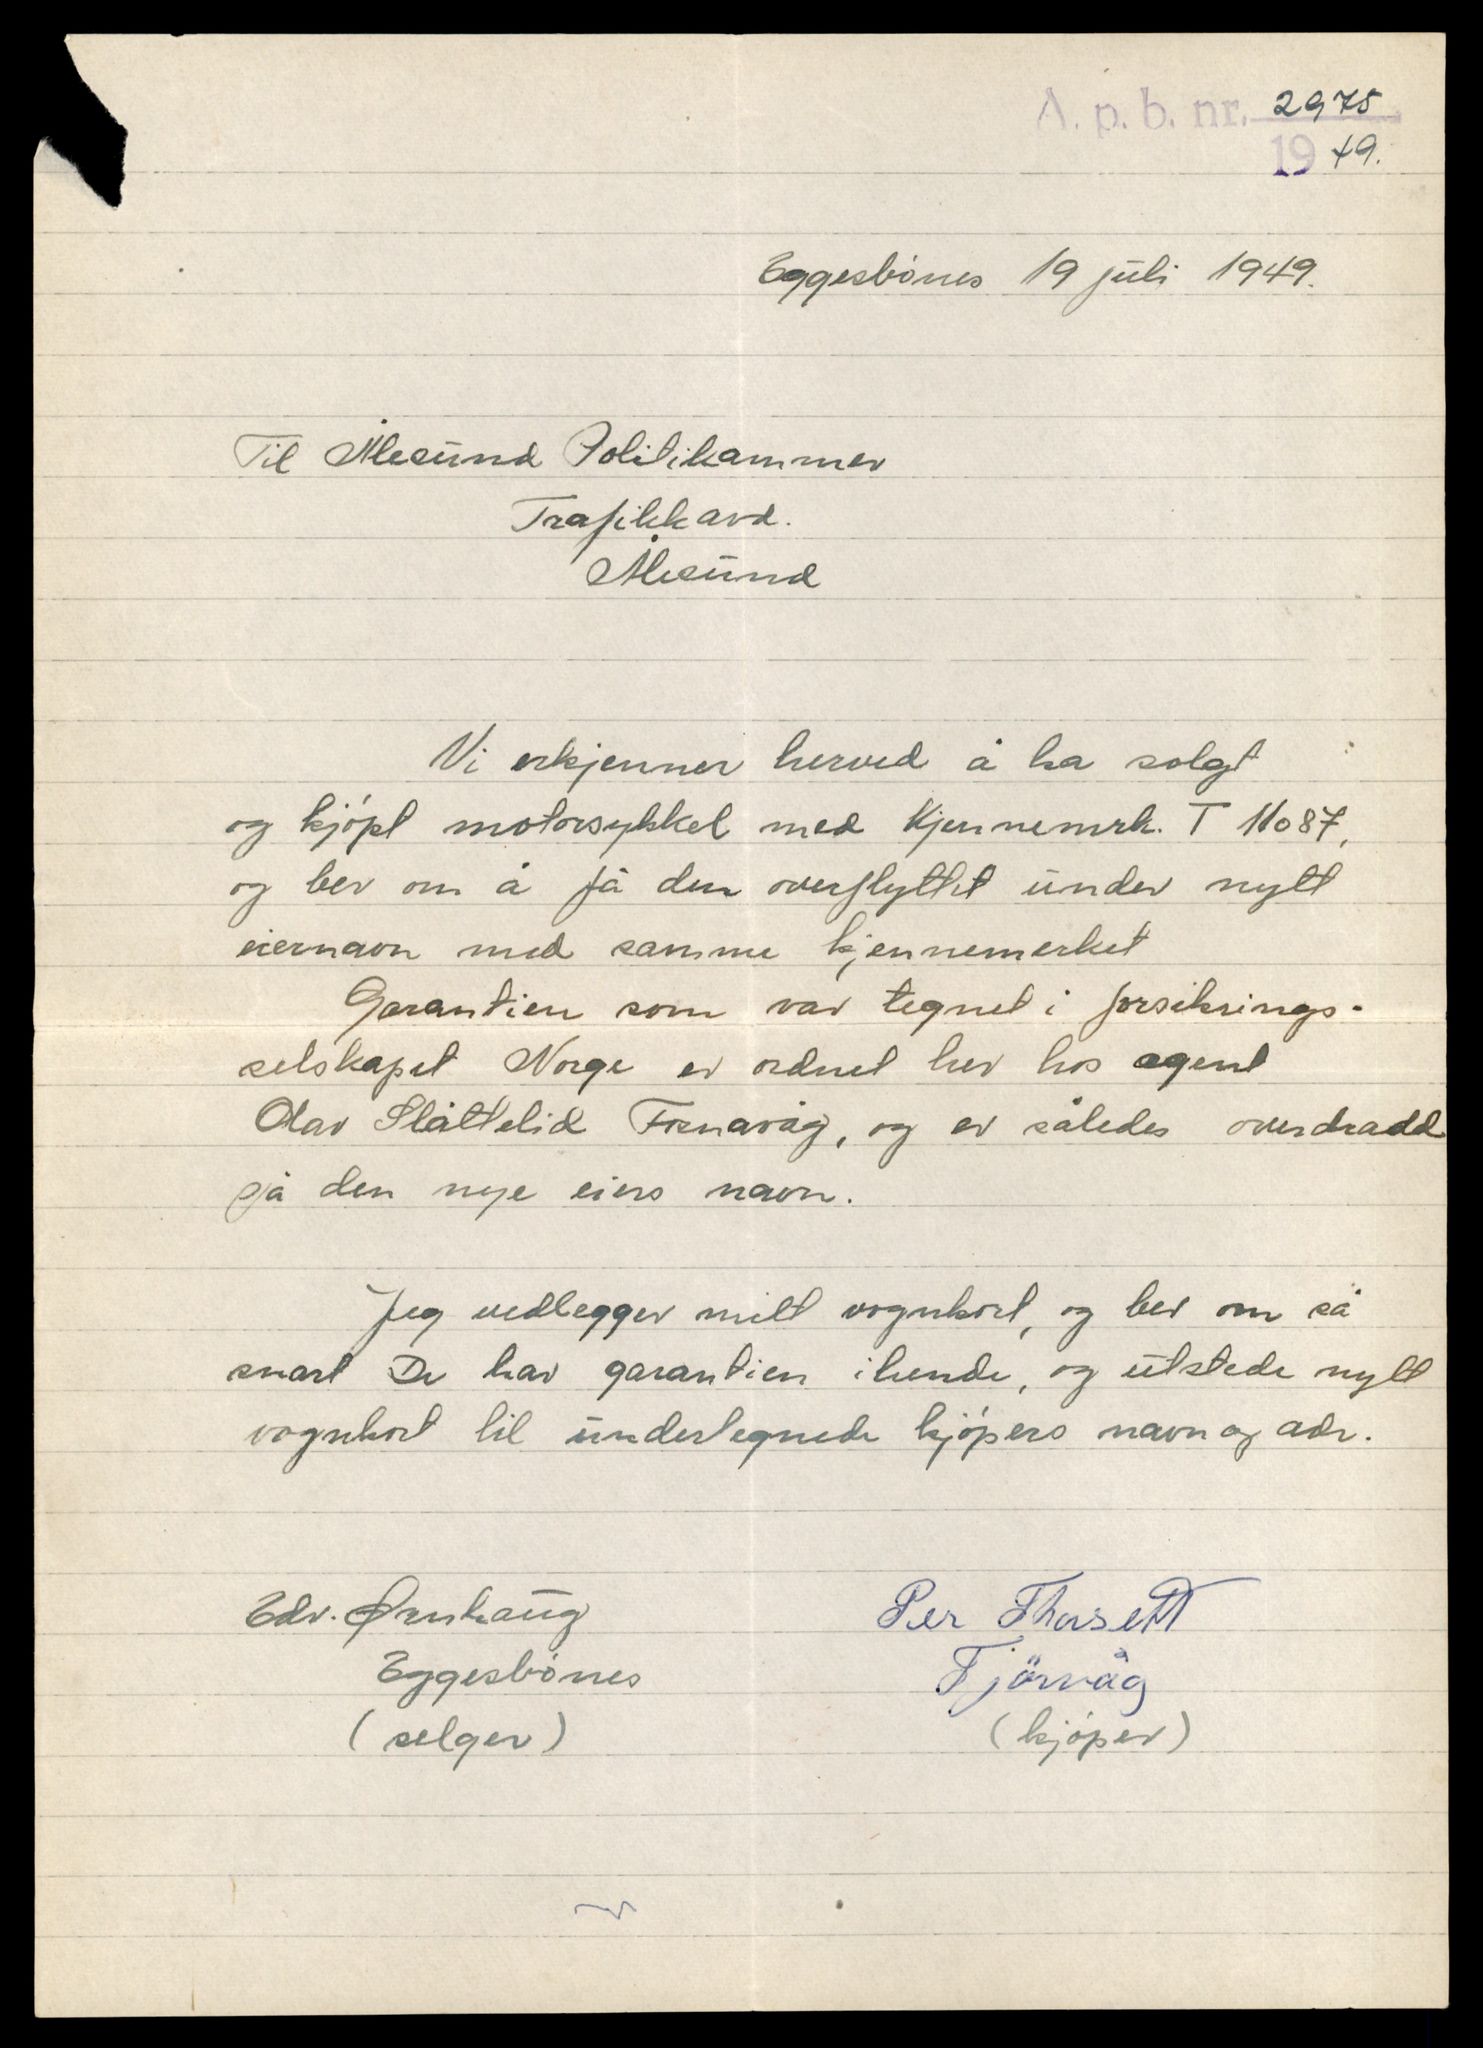 A. p. b. nr. 2975
19 49.
Eggesbönes 19 juli 1949.
Til Ålesund Politikammer
Trafikkavd.
Ålesund
Vi erkjenner herved å ha solgt
og kjöpt motorsykkel med Kjennemrk. T 11087,
og ber om å få den overflyttet under nytt
eiernavn med samme kjennemerket
Garantien som var tegnet i forsikrings-
selskapet Norge er ordnet her hos agent
Olav Slåttelid Fosnavåg, og er således overdradd
på den nye eiers navn.
Jeg vedlegger mitt vognkort, og ber om så
snart De har garantien ihende, og utstede nytt
vognkort til undertegnede kjöpers navn og adr.
Edv. Ørnhaug
Eggesbönes
(selger)
Per Thorsett
Tjörvåg
(kjöper)